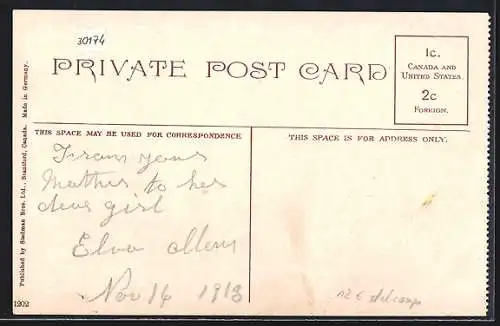 30174
PRIVATE POST CARD
1c.
CANADA AND
UNITED STATES.
2c
FOREIGN.
THIS SPACE MAY BE USED FOR CORRESPONDENCE
THIS SPACE IS FOR ADDRESS ONLY.
From your
Mother to her
dear girl
Elva
Nov 16 1913
Published by Stedman Bros. Ltd., Brantford, Canada. Made in Germany.
1202